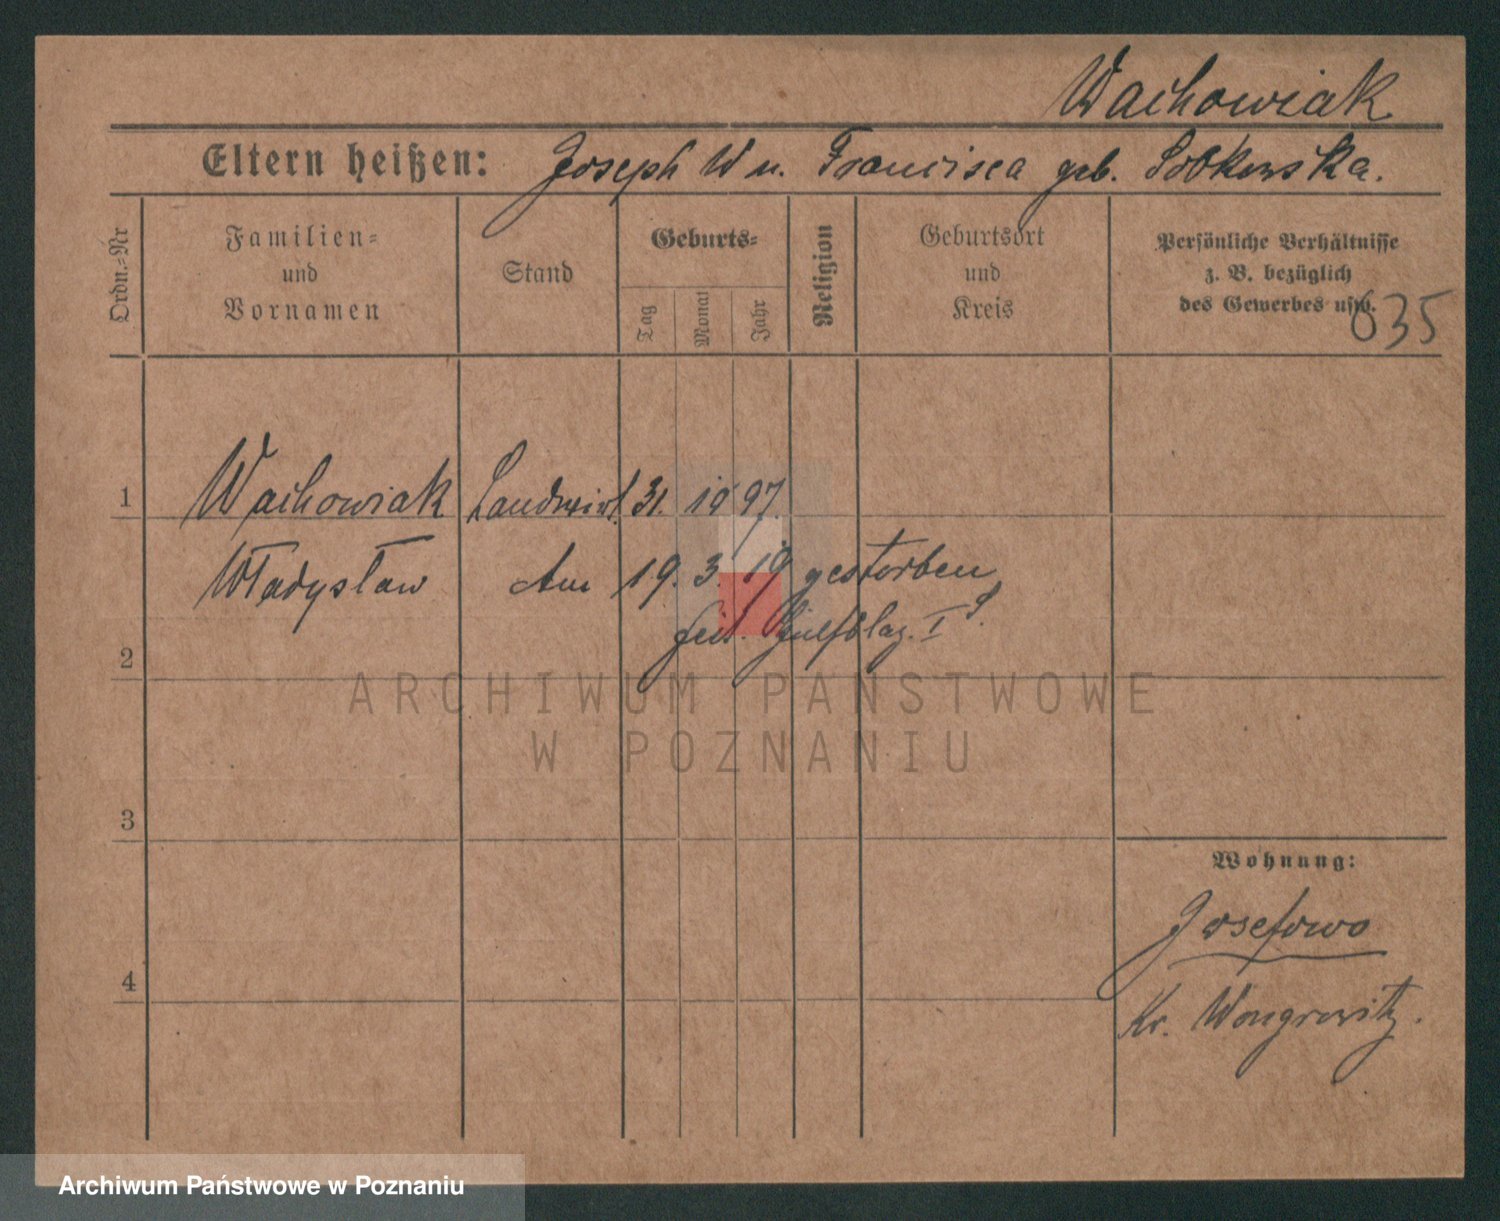 Wachowiak
Eltern heißen: Joseph W u. Francisca geb. Sobkowska.
Ordn.-Nr
Familien-
und
Vornamen
Stand
Geburts-
Tag
Monat
Jahr
Religion
Geburtsort
und
Kreis
Persönliche Verhältnisse
z. B. bezüglich
des Gewerbes usw.
635
1 Wachowiak Landwirt 31. 10 97.
Władysław Am 19. 3. 19 gestorben
2
ARCHIWUM PAŃSTWOWE
W POZNANIU
3
Wohnung:
Josefowo
4
Kr. Wongrowitz.
Archiwum Państwowe w Poznaniu